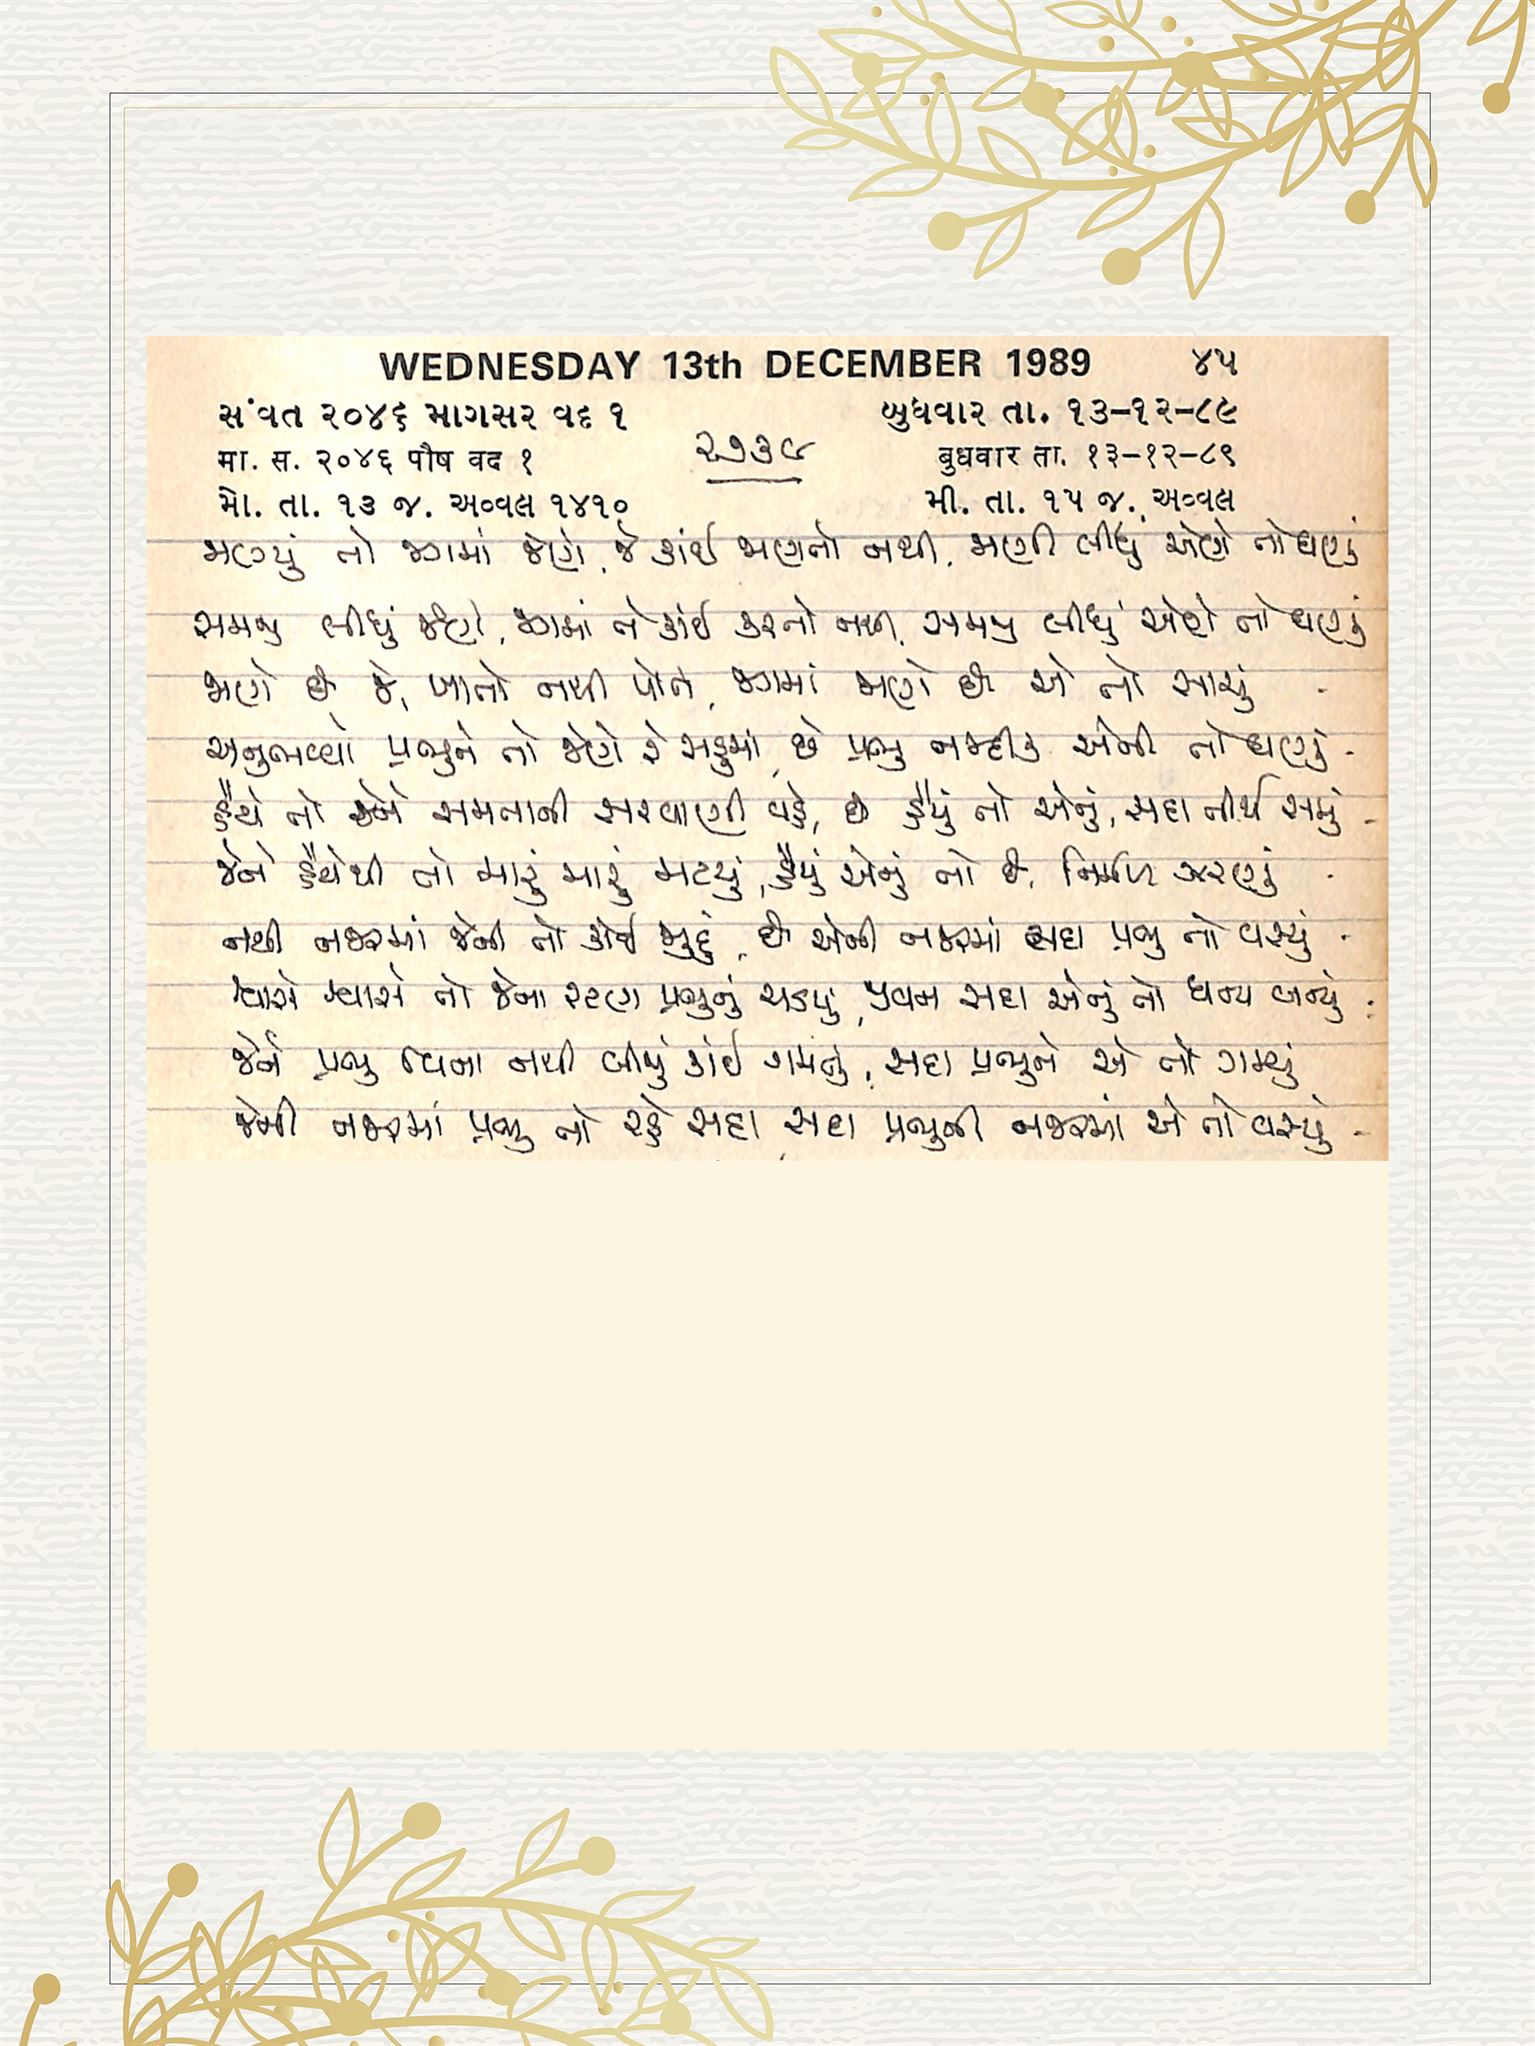 WEDNESDAY 13th DECEMBER 1989 ૪૫
સંવત ૨૦૪૬ માગસર વદ ૧ બુધવાર તા. ૧૩-૧૨-૮૯
मा. स. २०४६ पौष वद १ ૨૭૩૯ बुधवार ता. १३-१२-८९
મો. તા. ૧૩ જ. અવ્વલ ૧૪૧૦ મી. તા. ૧૫ જ. અવ્વલ
ભણ્યું તો જગમાં જેણે, જે કાંઈ ભણતો નથી, ભણી લીધું એણે તો ઘણું
સમજી લીધું જેણે, જગમાં તે કાંઈ કરતો નથી, સમજી લીધું એણે તો ઘણું
જાણે છે જે, જાતો નથી પોતે, જગમાં જાણે છે એ તો સાચું -
અનુભવ્યો પ્રભુને તો જેણે રે સહુમાં, છે પ્રભુ નજદીક એની તો ઘણું -
હૈયે તો જેને સમતાની સરવાણી વહે, છે હૈયું તો એનું, સદા તીર્થ સમું -
જેને હૈયેથી તો મારું મારું મટયું, હૈયું એનું તો છે, નિર્મળ ઝરણું -
નથી નજરમાં જેની તો કોઈ જુદું, છે એની નજરમાં સદા પ્રભુ તો વસ્યું -
શ્વાસે શ્વાસે તો જેના રટણ પ્રભુનું ચડયું, જીવન સદા એનું તો ધન્ય બન્યું -
જેને પ્રભુ વિના નથી બીજું કાંઈ ગમતું, સદા પ્રભુને એ તો ગમ્યું
જેની નજરમાં પ્રભુ તો રહે સદા, સદા પ્રભુની નજરમાં એ તો વસ્યું -